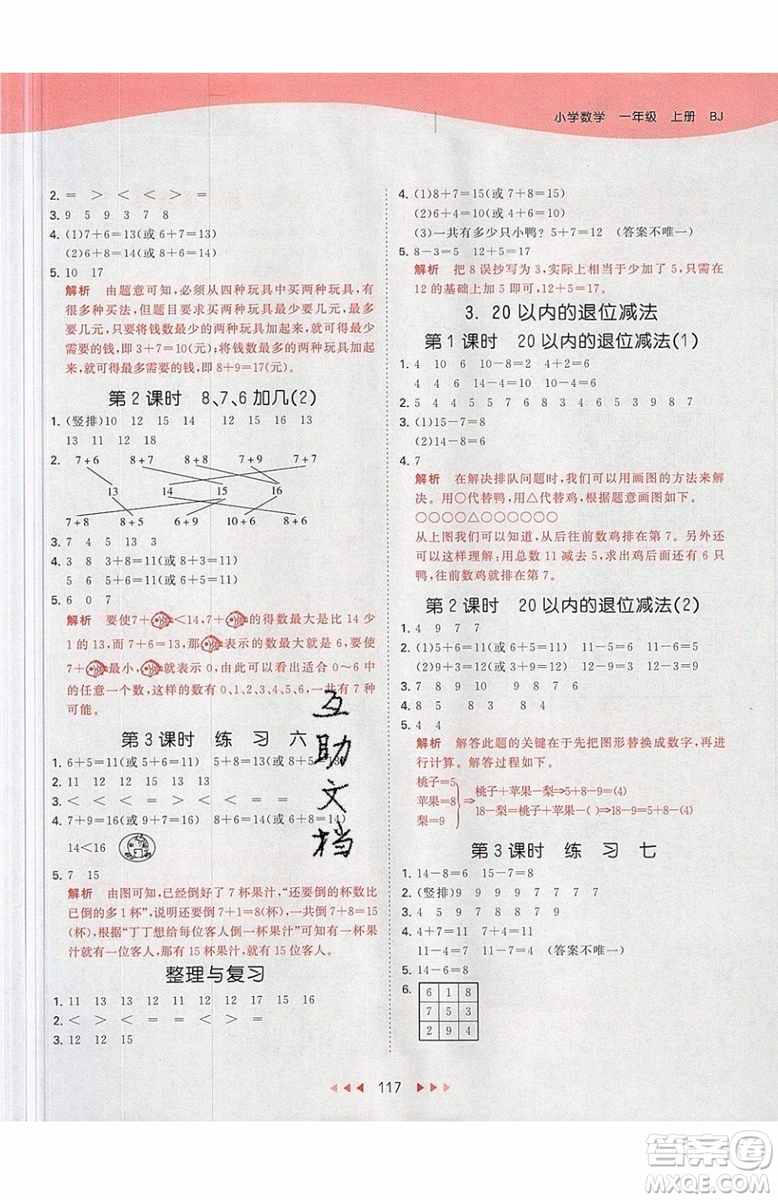 小学数学 一年级 上册 BJ
2. = > < < = >
3. 9 5 9 3 7 8
4. (1)6+7=13(或7+6=13)
(2)6+8=14(或8+6=14)
5. 10 17
解析 由题意可知,必须从四种玩具中买两种玩具,有
很多种买法,但题目要求买两种玩具最少要几元,最多
要几元,只要将钱数最少的两种玩具加起来,就是最少
要的钱,即3+7=10(元);将钱数最多的两种玩具加起
来,就是最多需要的钱,即8+9=17(元)。
第2课时 8、7、6加几(2)
1. (竖排)10 12 15 10 15 16 13
13 11 12 18
2. 7+6 8+7 7+9 7+7
13 14 15 16
7+8 8+5 9+7 10+6 6+8
3. 7 4 5 13 13
4. 3 8 3+8=11(或8+3=11)
5. 6 0 7
解析 要使7+<14,7+的得数最大是比14少
1的13,而7+6=13,那么表示的数最大是6。要使
7+最小,就表示0,从上面可以看出可以表示0~6中
的任意一个数,这样的数有0、1、2、3、4、5、6,一共有7种
可能。
第3课时 练习六
1. 6+5=11(或5+6=11) 5+8=13(或8+5=13)
2. 12 14 11 12 15 13 13
3. < < < = < =
4. 7+9=16(或9+7=16) 6+8=14(或8+6=14)
14<16
5. 7 15
解析 由图可知,已经倒了7杯果汁,“还要倒的杯数比
已倒的多1杯”,说明还要倒7+1=8(杯),共7+8=15
(杯),根据“丁丁想给每位客人倒一杯果汁”可知,有多少
杯果汁就有一位客人,那么有15杯果汁,就有15位客人。
整理与复习
1. 11 13 12 15 13 13 16 11
2. < > > = < < > =
3. 12 12 15
4. (1)8+7=15(或7+8=15)
(2)6+4=10(或4+6=10)
(3)一共有多少只小鸭? 5+7=12 (答案不唯一)
5. 8-3=5 12+5=17
解析 把8误抄写为3,实际上相当于少加了5,只需在
12的基础上加5即可,12+5=17。
3. 20以内的退位减法
第1课时 20以内的退位减法(1)
1. 4 10 6 10-8=2 4+2=6
4 4 6 14-4=10 10-6=4
2. 5 4 5 4 7 9 3 8 9 8 3
3. (1)15-7=8
(2)14-8=6
4. 7
解析 在解决排队问题时,我们可以用画图的方法来解
决。用○代替鸭,用△代替鸡,根据题意画图如下。
○○○○△○○○○○○
从上图我们可以知道,从后往前数鸡排在第7。另外还
可以这样理解:用总数11减去5,求出鸡后面还有6只
鸭,因此从后往前数鸡排在第7。
第2课时 20以内的退位减法(2)
1. 4 9 7 7
2. (1)5+6=11(或6+5=11) 11-5=6 11-6=5
(2)3+9=12(或9+3=12) 12-3=9 12-9=3
3. 7 8 9 9 10 7 8 8
4. 9 5 4 8 8 4
5. 4 4
解析 解答此题的关键在于先把图形替换成数字,再进
行计算。解答过程如下:
桃子=5
苹果=8
梨=9
桃子+苹果-梨=( )⇒5+8-9=(4)
18-梨-桃子=( )⇒18-9-5=(4)
第3课时 练习七
1. 14-8=6 15-7=8
2. (竖排)9 8 7 8 9 8
3. 4 5 9 7 8 7 9 9
4. 4+7=11 7+4=11
11-4=7 11-7=4 (答案不唯一)
5. 14-6=8
6. 6 1 8
7 5 3
2 9 4
互助文档
117
答案圈
MXQE.COM